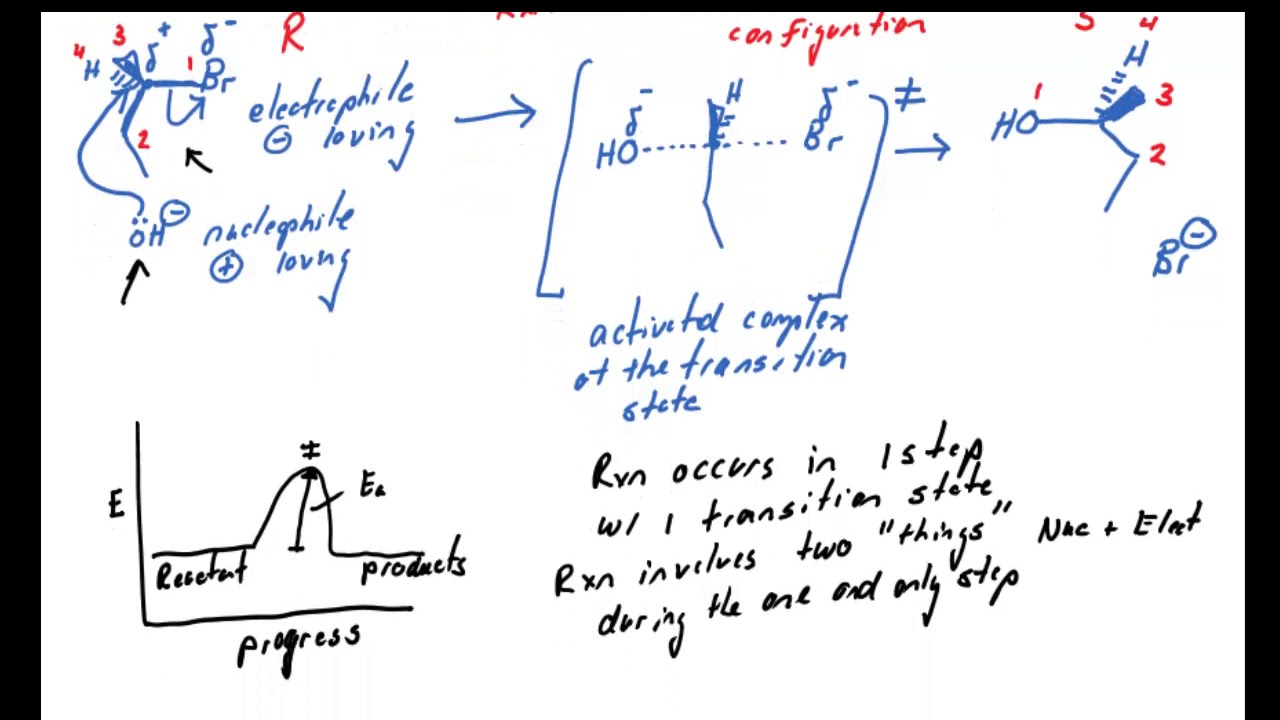 δ+ δ- R configuration S
4 3 H 1 Br 2
electrophile
⊖ loving
ÖH⊖ nucleophile
⊕ loving
δ- HO H δ- Br ≠
HO 1 H 4 3 2
Br⊖
activated complex
at the transition
state
E
≠
Ea
Reactant products
progress
Rxn occurs in 1 step
w/ 1 transition state
Rxn involves two "things" Nuc + Elect
during the one and only step